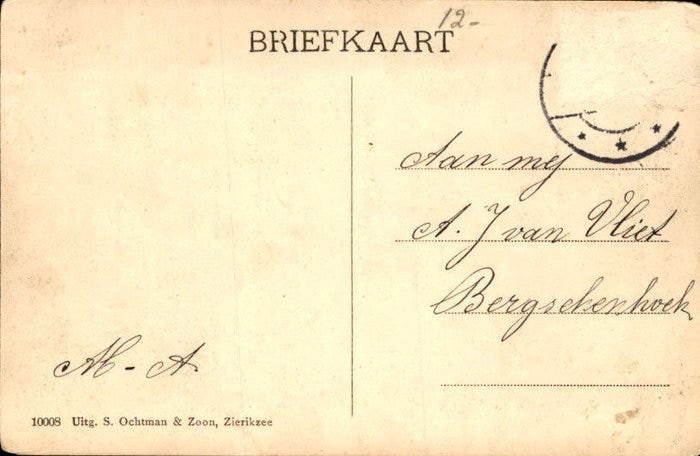 12-
BRIEFKAART
Aan mej
A. J van Vliet
Bergschenhoek
M - A.
10008 Uitg. S. Ochtman & Zoon, Zierikzee